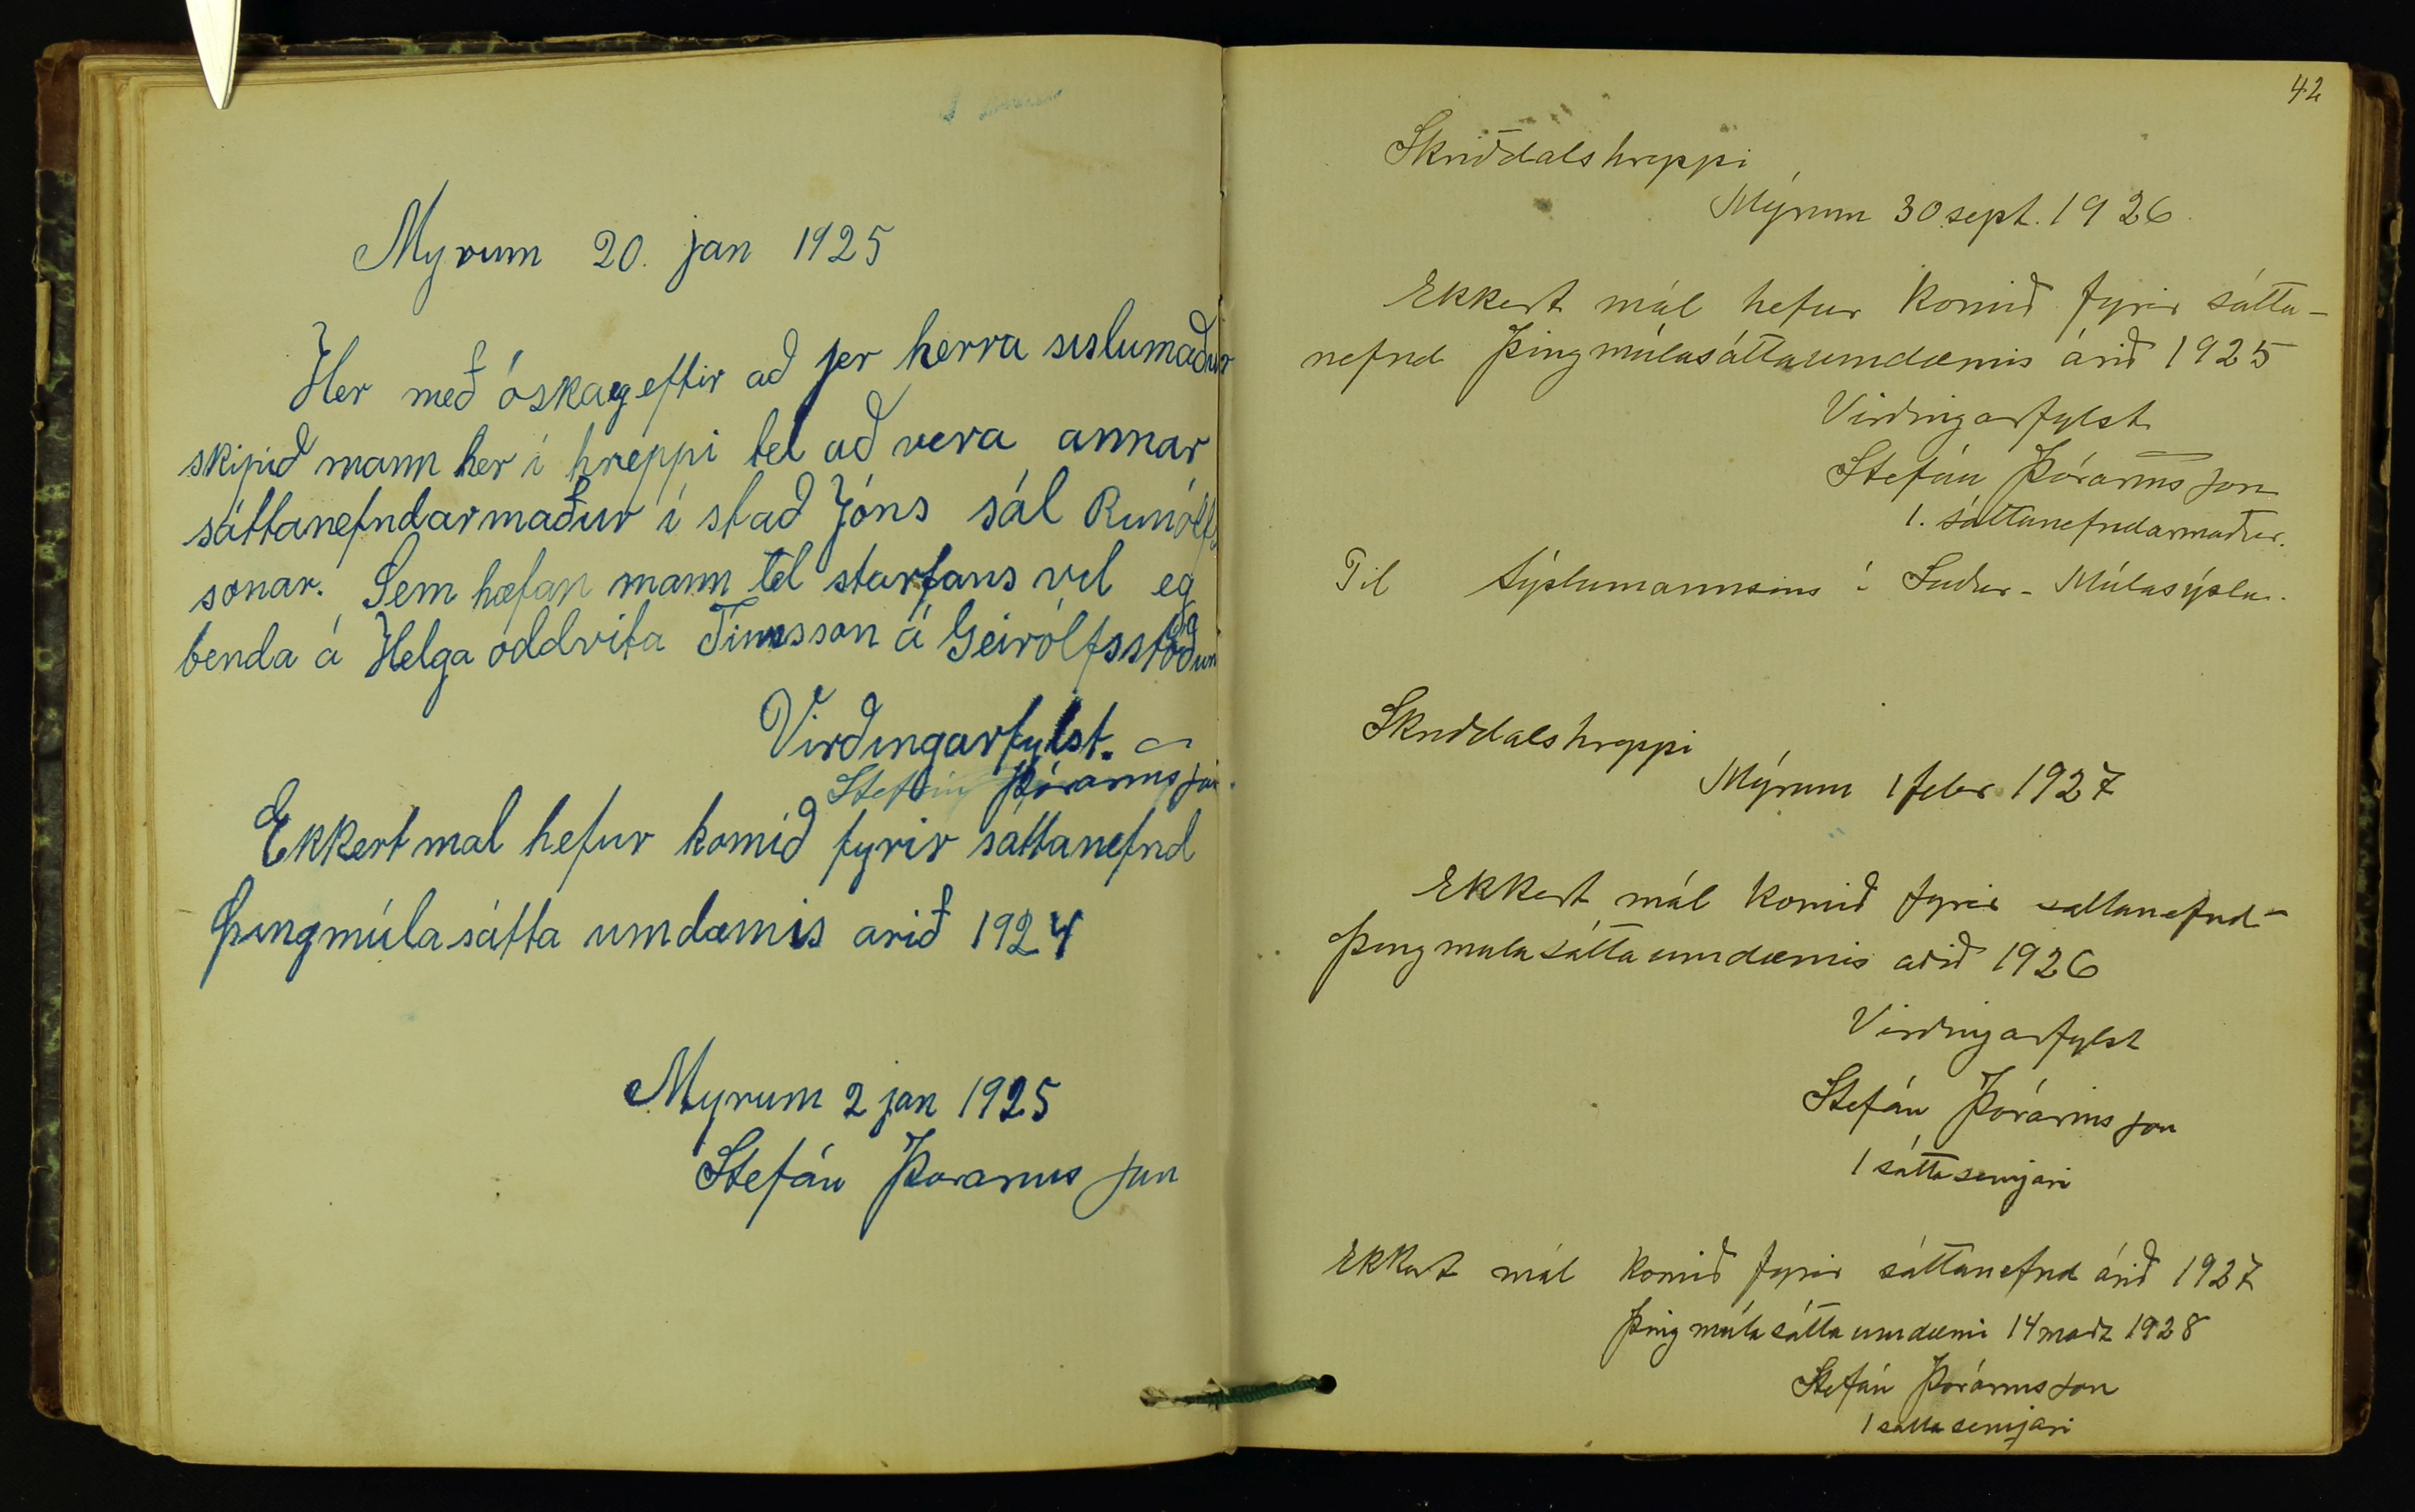 Myrum 20. jan 1925
Her með óska eg eftir að þer herra sislumaður
skipið mann her í hreppi tel að vera annar
sáttanefndarmaður í stað Jóns sál Runólfs
sonar. Sem hæfan mann tel starfans vil eg
benda á Helga oddvita Finnsson á Geirólfsstöðum
Virðingarfylst.
Stefán Þórarinsson.
Ekkert mal hefur komið fyrir sáttanefnd
Þingmúlasátta umdæmis arið 1924
Myrum 2 jan 1925
Stefán Þorarinsson
42
Skriðdalshreppi
Mýrum 30 sept. 1926.
Ekkert mál hefur komið fyrir sátta-
nefnd Þingmúlasáttaumdæmis árið 1925
Virðingarfylst
Stefán Þórarinsson
1. sáttanefndarmaður.
Til sýslumannsins í Suður-Múlasýslu.
Skriðdalshreppi
Mýrum 1 febr 1927
Ekkert mál komið fyrir sattanefnd-
Þingmulasáttaumdæmis arið 1926
Virðingarfylst
Stefán Þórarinsson
1 sáttasemjari
Ekkert mál komið fyrir sáttanefnd árið 1927
Þingmúlasáttaumdæmi 14 marz 1928
Stefán Þórarinsson
1 sáttasemjari